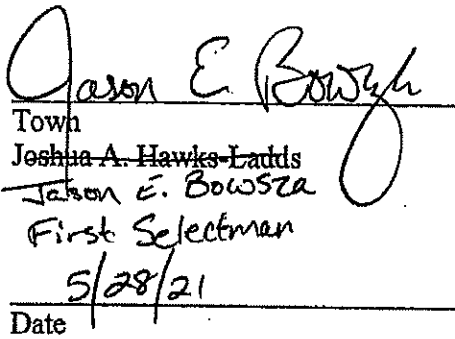 Jason E. Bowsza
Town
Joshua A. Hawks-Ladds
Jason E. Bowsza
First Selectman
5/28/21
Date